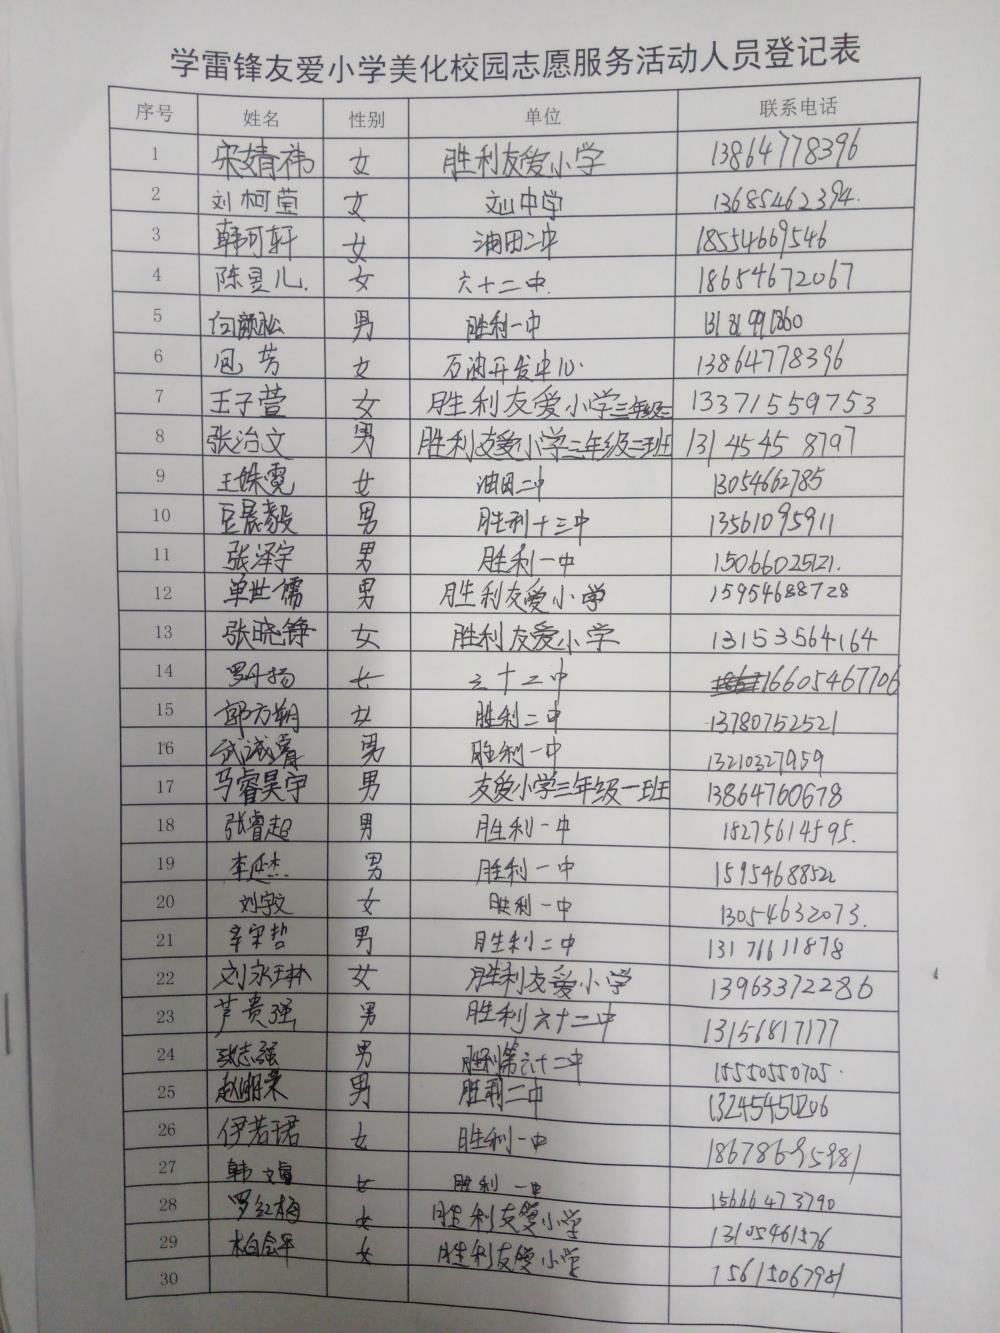 学雷锋友爱小学美化校园志愿服务活动人员登记表
序号 姓名 性别 单位 联系电话
1 宋婧祎 女 胜利友爱小学 13864778396
2 刘柯莹 女 文山中学 13685462394.
3 韩珂轩 女 油田二中 18554669546
4 陈昱儿. 女 六十二中. 18654672067
5 男 胜利一中
6 芳 女 石油开发中心. 13864778396
7 王子萱 女 胜利友爱小学三年级二 13371559753
8 张治文 男 胜利友爱小学三年级二班 13145458797
9 王姝霓 女 油田二中 13054662785
10 豆晨毅 男 胜利十三中 13561095911
11 张泽宇 男 胜利一中 15066025121.
12 单世儒 男 胜利友爱小学 15954688728
13 张晓铮 女 胜利友爱小学 13153564164
14 罗丹扬 女 六十二中 16605467706
15 郭方朔 女 胜利二中 13780752521
16 武诚睿 男 胜利一中 13210327959
17 马睿昊宇 男 友爱小学三年级一班 13864760678
18 张睿超 男 胜利一中 18275614595.
19 李延杰 男 胜利一中 1595468852
20 刘宇文 女 胜利一中 13054632073.
21 辛宗哲 男 胜利二中 13176611878
22 刘永琳 女 胜利友爱小学 13963372286
23 芦贵强 男 胜利六十二中 13156817177
24 张志强 男 胜利第六十二中 15550550705.
25 赵明荣 男 胜利二中
26 伊若珺 女 胜利一中 18678695981
27 韩文睿 女 胜利一中 15666473790
28 罗红梅 女 胜利友爱小学 13105461576
29 柏会平 女 胜利友爱小学 15615067981
30